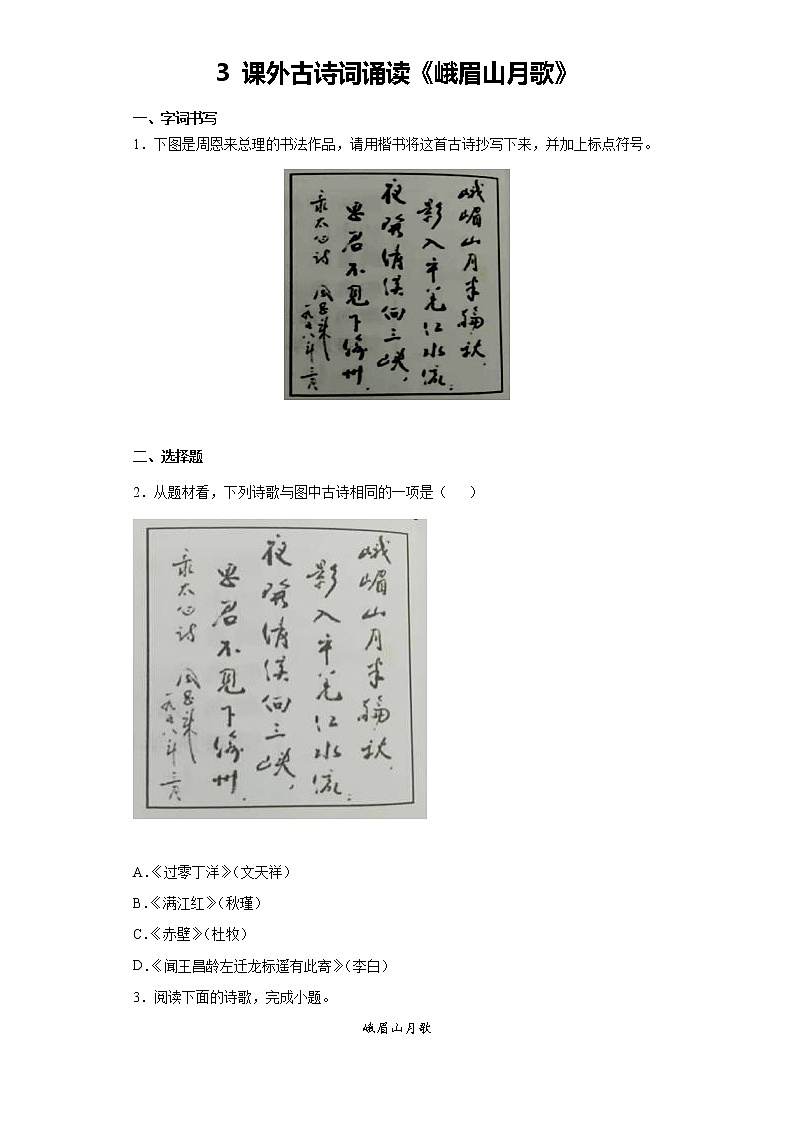 3 课外古诗词诵读《峨眉山月歌》
一、字词书写
1．下图是周恩来总理的书法作品，请用楷书将这首古诗抄写下来，并加上标点符号。
峨嵋山月半轮秋，
影入平羌江水流；
夜发清溪向三峡，
思君不见下渝州。
录太白诗 周恩来
一九五八年三月
二、选择题
2．从题材看，下列诗歌与图中古诗相同的一项是（ ）
峨嵋山月半轮秋，
影入平羌江水流；
夜发清溪向三峡，
思君不见下渝州。
录太白诗 周恩来
一九五八年三月
A.《过零丁洋》（文天祥）
B.《满江红》（秋瑾）
C.《赤壁》（杜牧）
D.《闻王昌龄左迁龙标遥有此寄》（李白）
3．阅读下面的诗歌，完成小题。
峨眉山月歌